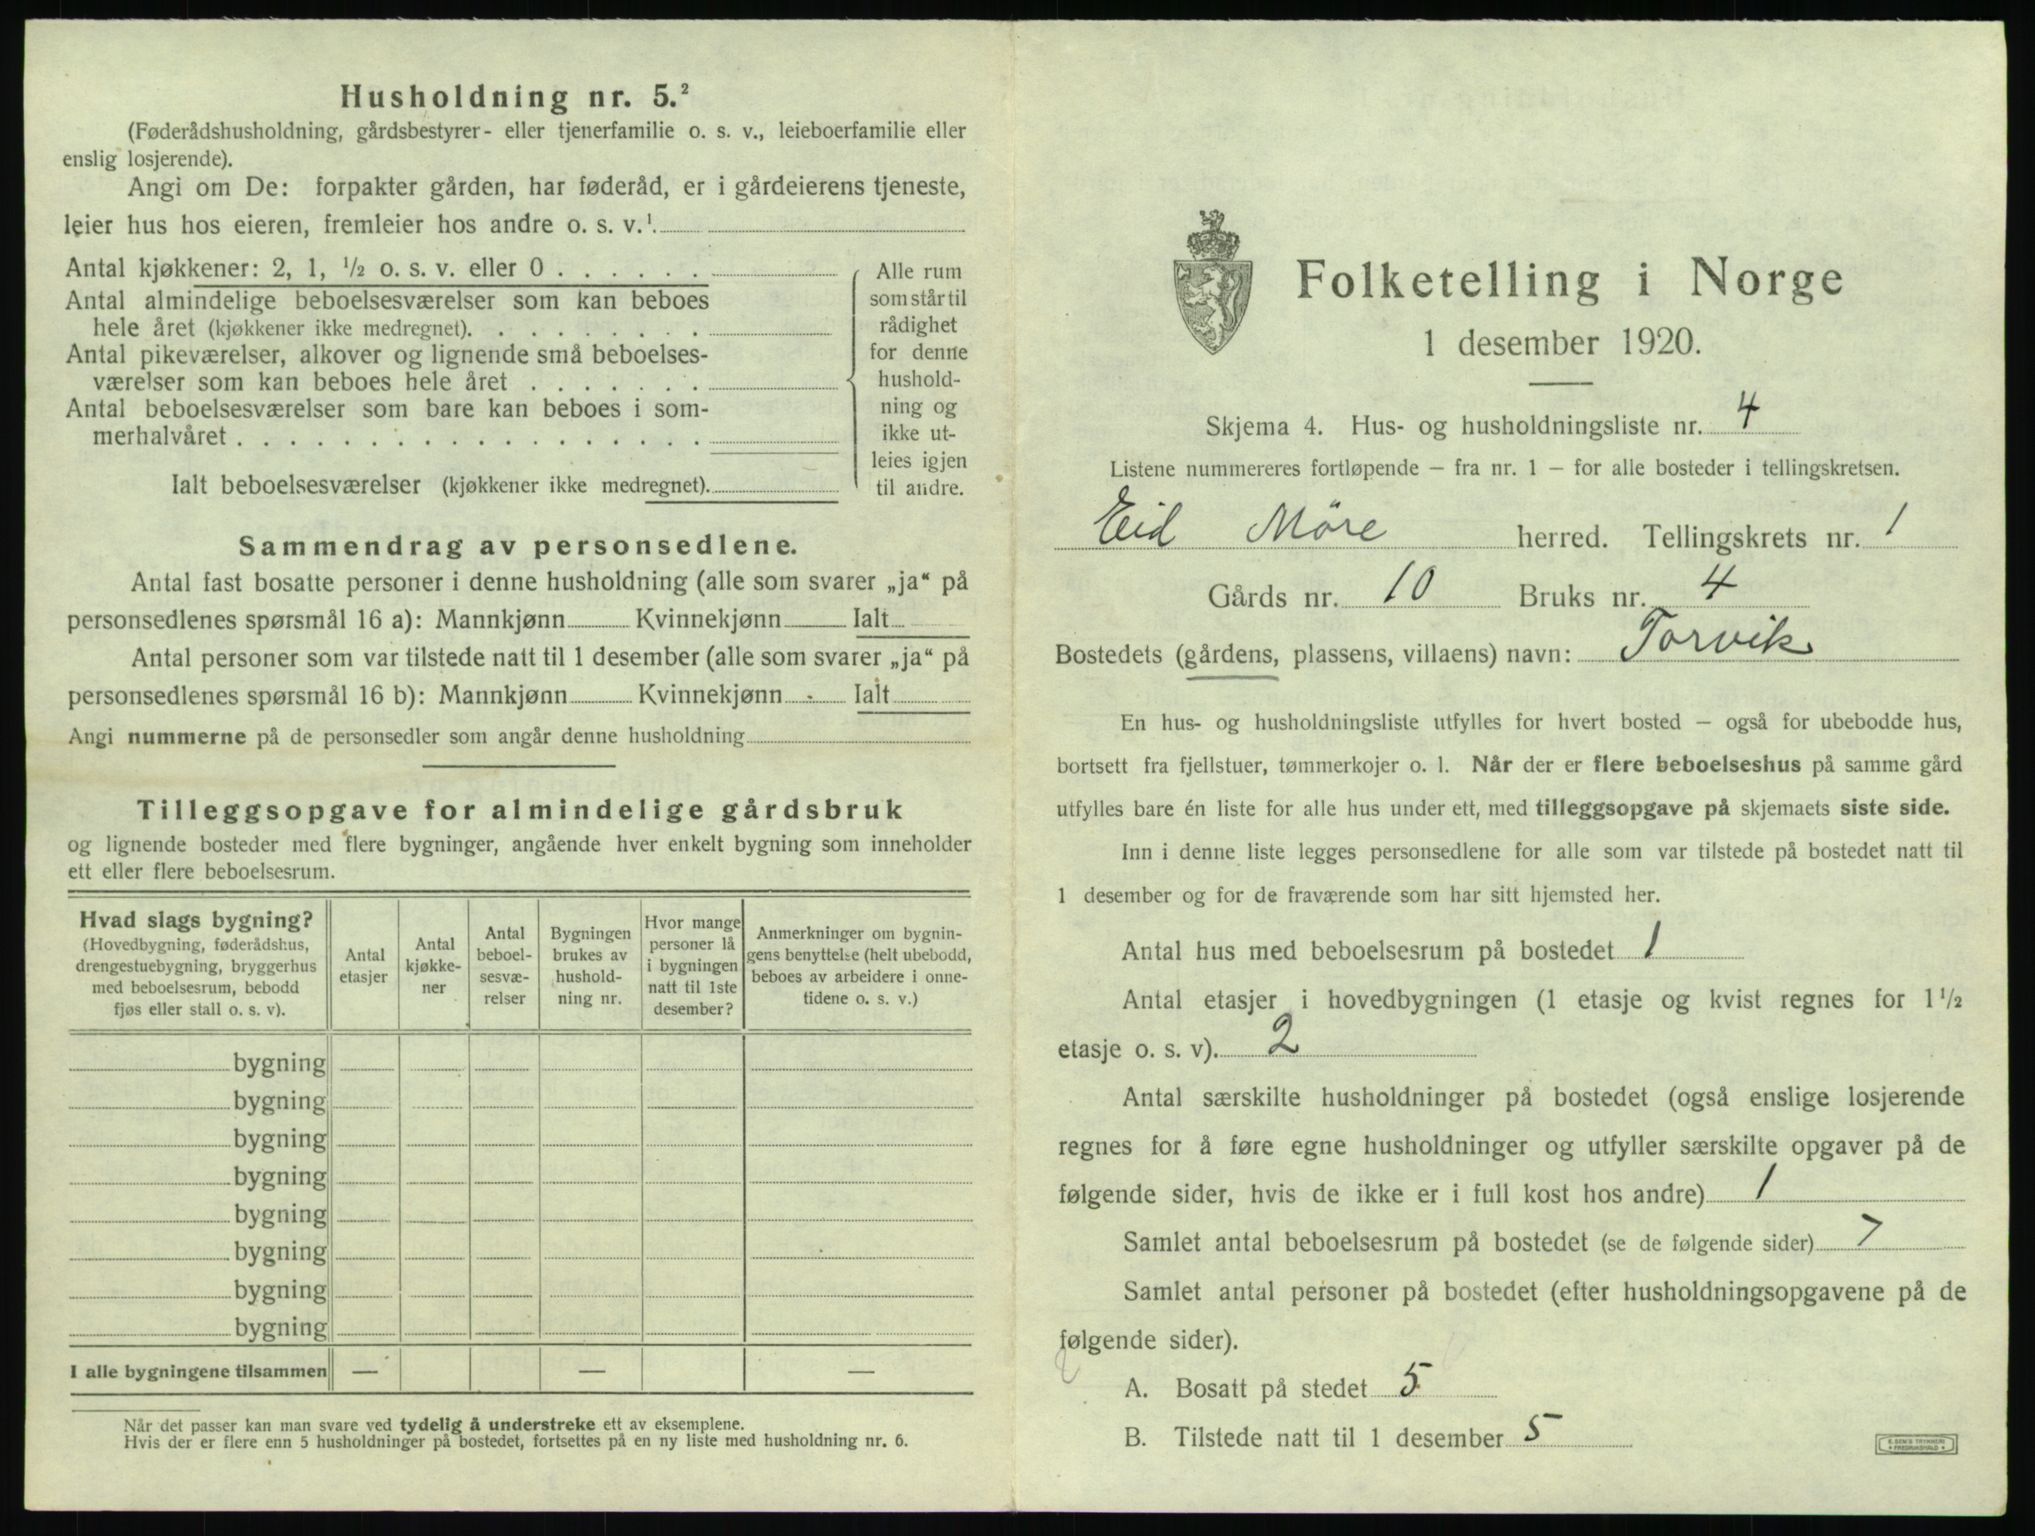 Husholdning nr. 5.²
(Føderådshusholdning, gårdsbestyrer- eller tjenerfamilie o. s. v., leieboerfamilie eller
enslig losjerende).
Angi om De: forpakter gården, har føderåd, er i gårdeierens tjeneste,
leier hus hos eieren, fremleier hos andre o. s. v.¹
Antal kjøkkener: 2, 1, ½ o. s. v. eller 0 . . . . . .
Antal almindelige beboelsesværelser som kan beboes
hele året (kjøkkener ikke medregnet). . . . . . . . .
Antal pikeværelser, alkover og lignende små beboelses-
værelser som kan beboes hele året . . . . . . .
Antal beboelsesværelser som bare kan beboes i som-
merhalvåret . . . . . . . . . . . . . . . . . .
Ialt beboelsesværelser (kjøkkener ikke medregnet).
Alle rum
som står til
rådighet
for denne
hushold-
ning og
ikke ut-
leies igjen
til andre.
Sammendrag av personsedlene.
Antal fast bosatte personer i denne husholdning (alle som svarer „ja“ på
personsedlenes spørsmål 16 a): Mannkjønn Kvinnekjønn Ialt
Antal personer som var tilstede natt til 1 desember (alle som svarer „ja“ på
personsedlenes spørsmål 16 b): Mannkjønn Kvinnekjønn Ialt
Angi nummerne på de personsedler som angår denne husholdning
Tilleggsopgave for almindelige gårdsbruk
og lignende bosteder med flere bygninger, angående hver enkelt bygning som inneholder
ett eller flere beboelsesrum.
Hvad slags bygning?
(Hovedbygning, føderådshus,
drengestuebygning, bryggerhus
med beboelsesrum, bebodd
fjøs eller stall o. s. v).
Antal
etasjer
Antal
kjøkke-
ner
Antal
beboel-
sesvæ-
relser
Bygningen
brukes av
hushold-
ning nr.
Hvor mange
personer lå
i bygningen
natt til 1ste
desember?
Anmerkninger om bygnin-
gens benyttelse (helt ubebodd,
beboes av arbeidere i onne-
tidene o. s. v.)
bygning
bygning
bygning
bygning
bygning
bygning
bygning
bygning
I alle bygningene tilsammen — — —
Når det passer kan man svare ved tydelig å understreke ett av eksemplene.
Hvis der er flere enn 5 husholdninger på bostedet, fortsettes på en ny liste med husholdning nr. 6.
Folketelling i Norge
1 desember 1920.
Skjema 4. Hus- og husholdningsliste nr. 4
Listene nummereres fortløpende – fra nr. 1 – for alle bosteder i tellingskretsen.
Eid Möre herred. Tellingskrets nr. 1
Gårds nr. 10 Bruks nr. 4
Bostedets (gårdens, plassens, villaens) navn: Torvik
En hus- og husholdningsliste utfylles for hvert bosted – også for ubebodde hus,
bortsett fra fjellstuer, tømmerkojer o. l. Når der er flere beboelseshus på samme gård
utfylles bare én liste for alle hus under ett, med tilleggsopgave på skjemaets siste side.
Inn i denne liste legges personsedlene for alle som var tilstede på bostedet natt til
1 desember og for de fraværende som har sitt hjemsted her.
Antal hus med beboelsesrum på bostedet 1
Antal etasjer i hovedbygningen (1 etasje og kvist regnes for 1 ½
etasje o. s. v). 2
Antal særskilte husholdninger på bostedet (også enslige losjerende
regnes for å føre egne husholdninger og utfyller særskilte opgaver på de
følgende sider, hvis de ikke er i full kost hos andre) 1
Samlet antal beboelsesrum på bostedet (se de følgende sider) 7
Samlet antal personer på bostedet (efter husholdningsopgavene på de
følgende sider).
A. Bosatt på stedet 5
B. Tilstede natt til 1 desember 5